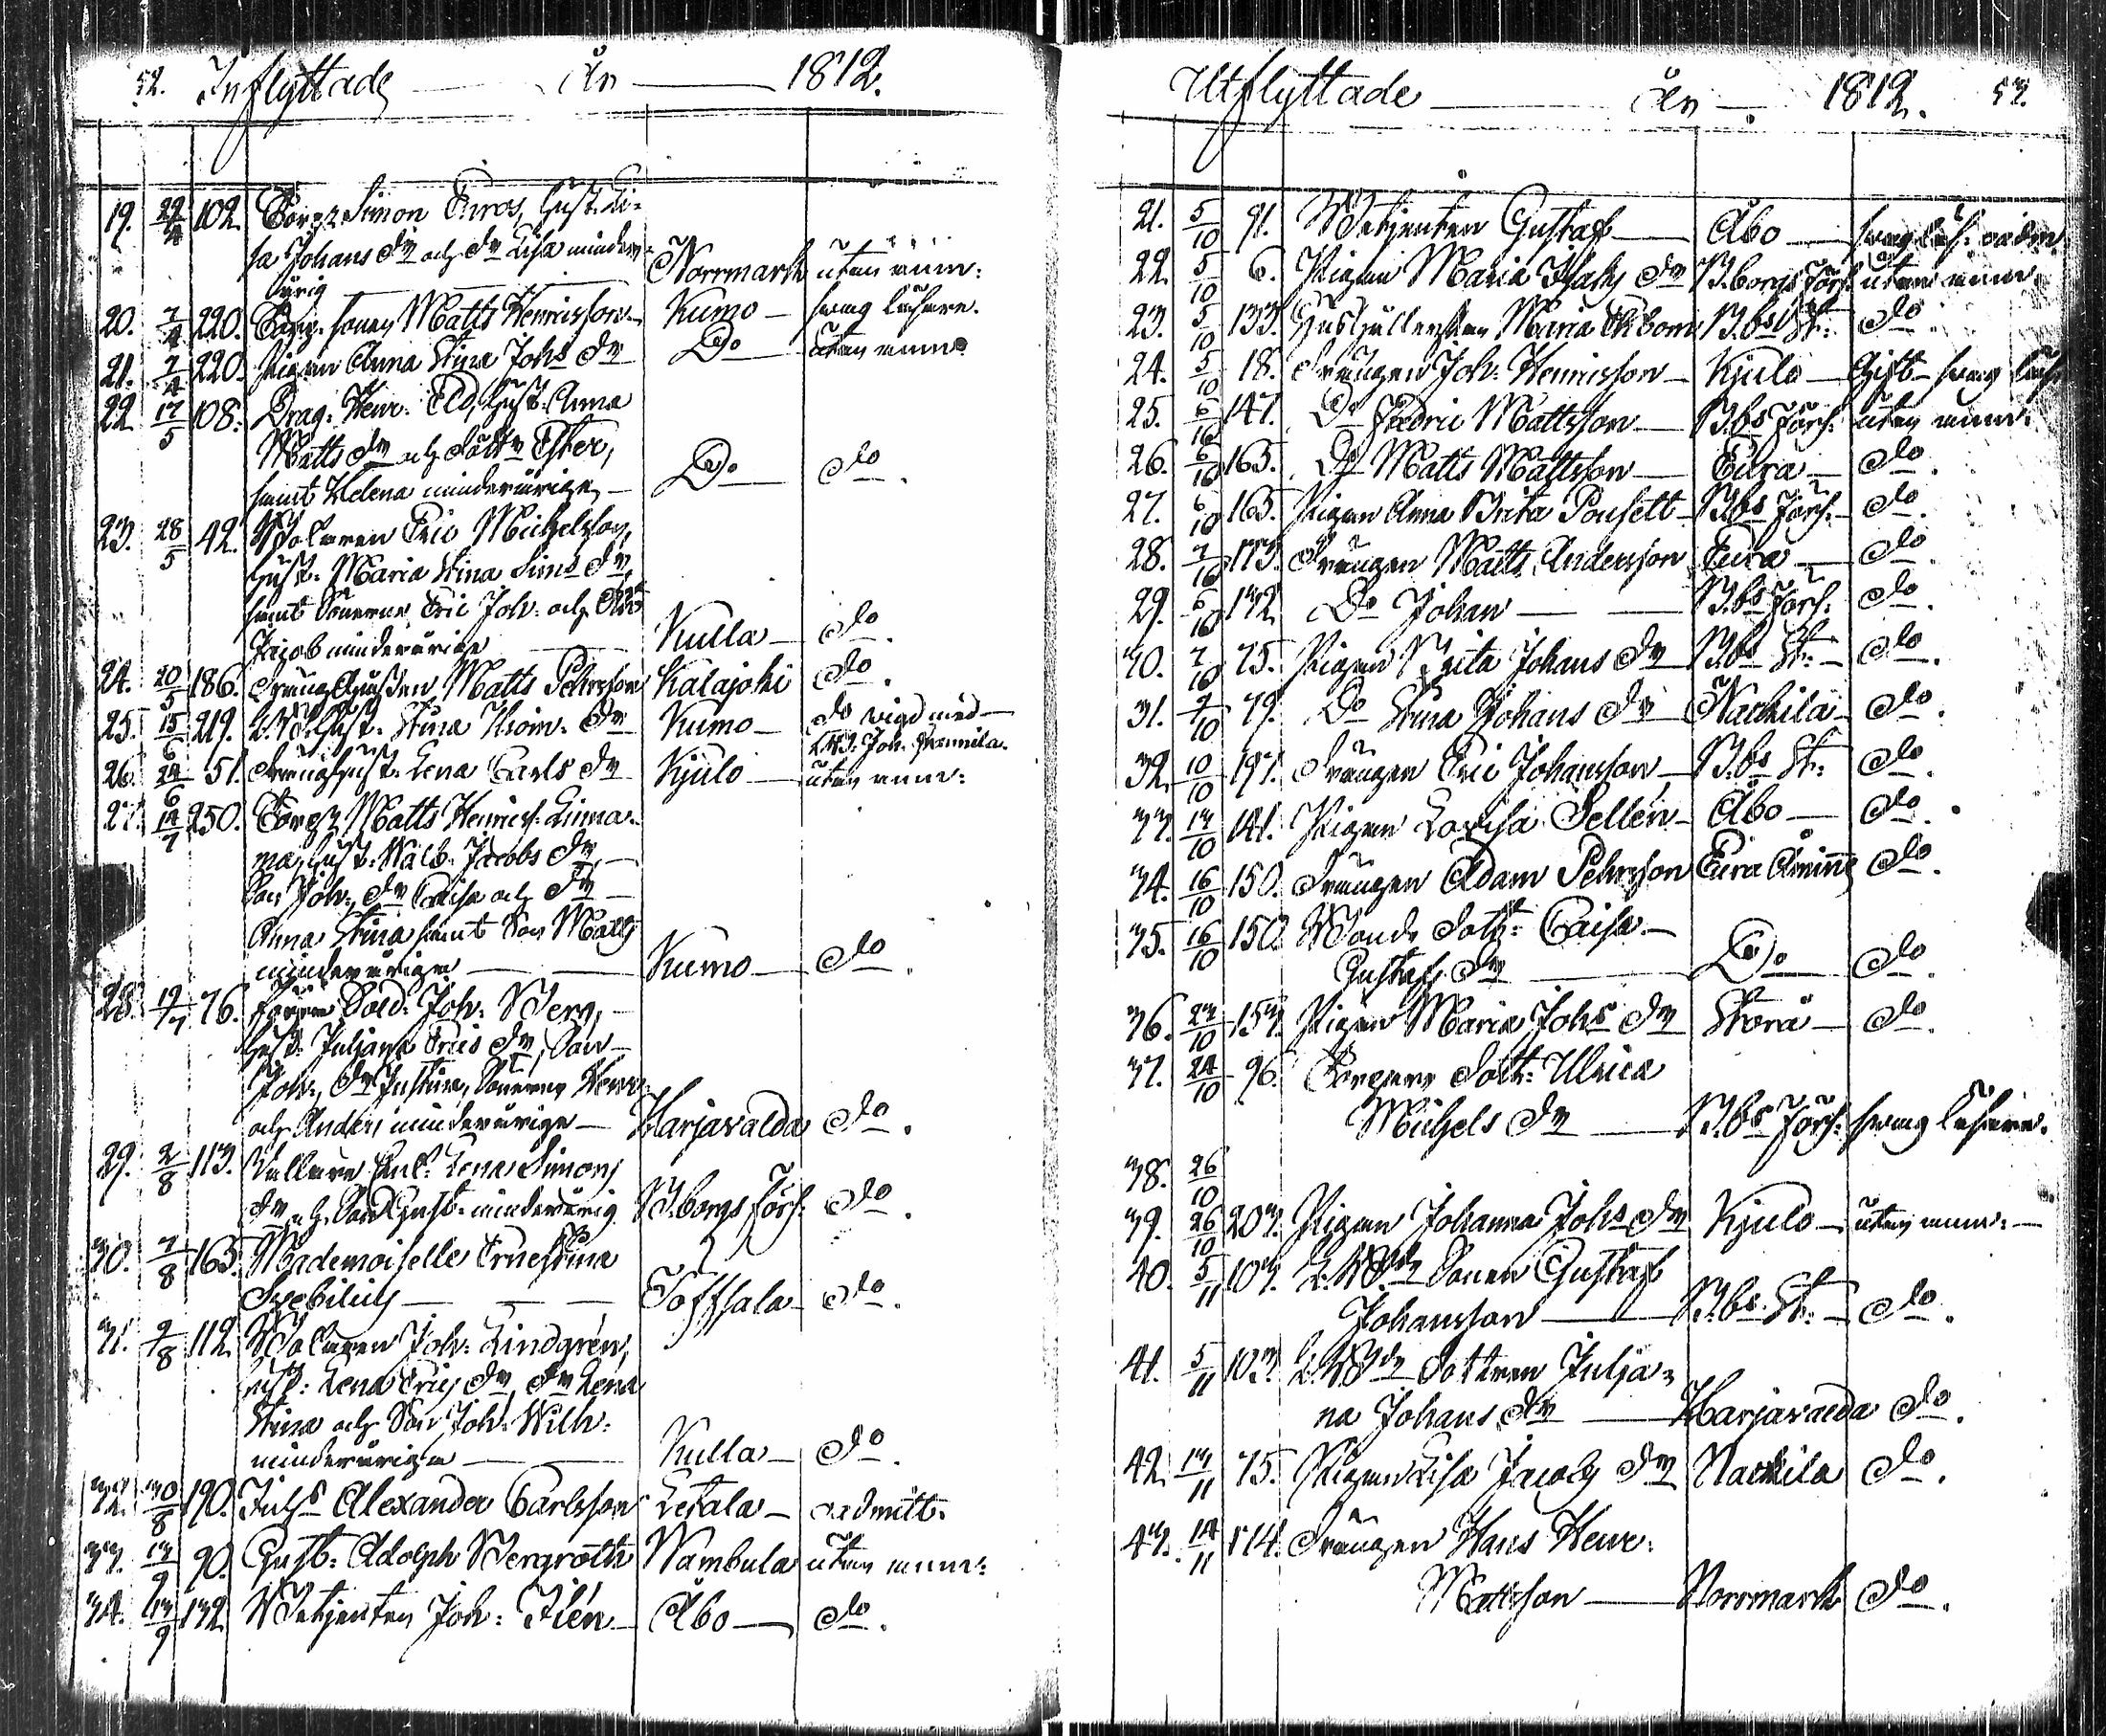 52. Inflyttade År 1812.
19. 29/4 102. Torp: Simon Euros, Hust. Li-
sa Johans dr och dr Lisa minder-
årig Norrmark utan anm:
20. 7/4 220. Torp. sonen Matts Henricsson Kumo svag läsare.
21. 7/4 220. Pigan Anna Stina Johs dr Do utan anm:
22. 17/5 108. Drag: Henr: Eld, Hust: Anna
Matts dr och dottr Ester,
samt Helena minderårige Do do.
23. 28/5 42. Målaren Eric Michelsson,
Hust: Maria Stina Sims dr,
samt Sönerne Eric Joh: och
Jacob minderårige Kulla do.
24. 20/5 186. Matts Pehrsson Kalajoki do.
25. 15/6 219. Hust: Stina dr Kumo do vigd med
Joh.
26. 24/6 51. Dränghust: Lena Carls dr Kjulo utan anm:
27. 14/7 250. Torp: Matts Henrics:
Hust: Walb: Jacobs dr,
Son Joh:, dr Caisa och dr
Anna Stina samt Son Matts
minderårige Kumo do.
28. 19/7 76. Sold: Joh: Berg,
Hust: Juliana Erics dr, Son
Joh:, dr Justina, Sönerne Henr:
och Anders minderårige Harjavalda do.
29. 2/8 113. Enk: Lena Simons
dr och Son Gust: minderårig B:borgs förs: do.
30. 7/8 163. Mademoiselle Ernestina
Svebilius Töfsala do.
31. 9/8 112. Målaren Joh: Lindgrén,
Hust: Lena Erics dr, dr Lena
Stina och Son Joh: Wilh:
minderårige Kulla do.
32. 30/8 190. Alexander Carlsson Letala admitt:
33. 13/9 90. Gust: Adolph Bergroth Wambula utan anm:
34. 13/9 132 Betjenten Joh: Ilén Åbo do.
Utflyttade År 1812. 53.
21. 5/10 91. Betjenten Gustaf Åbo svag läs:
22. 5/10 6. Pigan Maria Isaks dr B:borgs förs: utan anm:
23. 5/10 133. Hushållerskan Maria Ekbom B:bs St: do
24. 5/10 18. Drängen Joh: Henricsson Kjulo Gift svag läs:
25. 6/10 147. Do Fredric Mattsson B:bs förs: utan anm:
26. 6/10 163. Do Matts Mattsson Eura do.
27. 6/10 163. Pigan Anna Brita Pousett B:bs förs: do.
28. 7/10 173. Drängen Matts Andersson Eura do
29. 6/10 132 Do Johan B:bs förs: do.
30. 7/10 75. Pigan Brita Johans dr B:bs St: do.
31. 7/10 79. Do Stina Johans dr Nackila do.
32. 10/10 197. Drängen Eric Johansson B:bs St: do
33. 13/10 141. Pigan Lovisa Sellén Åbo do.
34. 16/10 150. Drängen Adam Pehrsson Eura Åminne do.
35. 16/10 150. Bonde dott: Caisa
Gustafs dr Do do.
36. 23/10 153. Pigan Maria Johs dr Storå do.
37. 24/10 96. Torpare dott: Ulrica
Michels dr B:bs förs: svag läsare.
38. 26/10
39. 26/10 203. Pigan Johanna Johs dr Kjulo utan anm:
40. 5/11 103. Sonen Gustaf
Johansson B:bs St: do.
41. 5/11 103. dottren Julja-
na Johans dr Harjavalda do.
42. 13/11 75. Pigan Lisa Jacobs dr Nackila do.
43. 14/11 114. Drängen Hans Henr:
Mattsson Norrmark do.